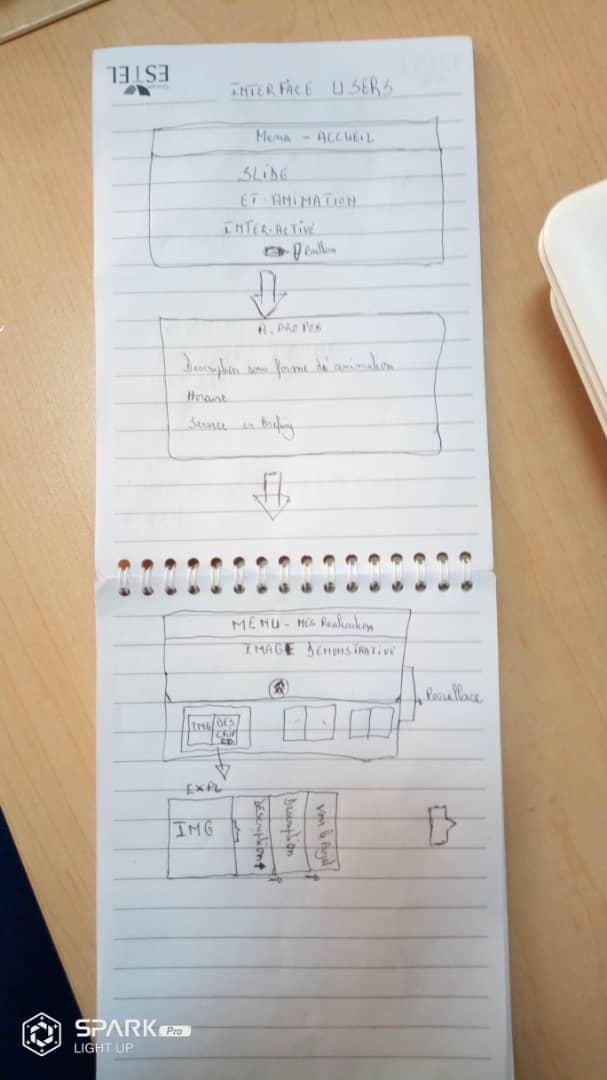 ESTEL
INTERFACE USERS
Menu - ACCUEIL
SLIDE
ET ANIMATION
INTER-ACTIVE
Button
A. PROPOS
Description sous forme de animation
Horaire
Service en Briefing
MENU - MES Realisation
IMAGE DEMONSTRATIVE
Parallaxe
IMG
DES
CRIP
EXPL
IMG
Description
Description
Voir le Projet
SPARK Pro
LIGHT UP